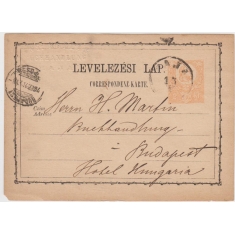 LEVELEZÉSI LAP.
CORRESPONDENZ-KARTE.
Herrn H. Martin
Buchhandlung
Budapest
Hotel Hungaria